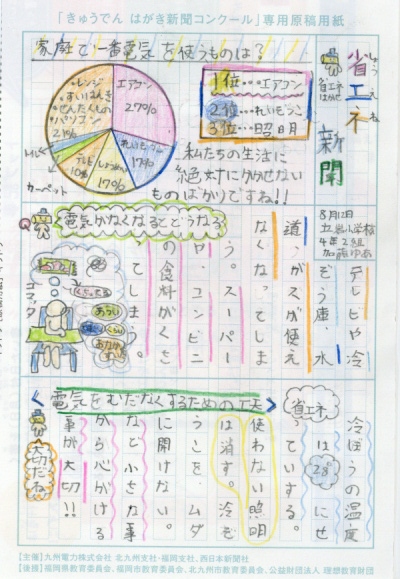 「きゅうでん はがき新聞コンクール」専用原稿用紙
省エネ新聞
しょう え ね
省エネ
はかせ
8月12日
立岩小学校
4年2組
家庭で一番電気を使うものは?
エアコン
27%
れいぞうこ
17%
しょうめい
17%
テレビ
10%
カーペット
トイレ
・レンジ
・すいはんき
・せんたくもの
・パソコン
21%
1位…エアコン
2位…れいぞうこ
3位…照明
私たちの生活に
絶対にかかせない
ものばかりですね!!
Q
電気がなくなるとどうなる
テレビや冷
ぞう庫、水
道、ガスが使え
なくなってしま
う。スーパー
や、コンビニ
の食料がくさ
ってしまう。
コマッタ
くさってる
あつい
くらい
電気をむだなくするための工夫
省エネ
冷ぼうの温度
は28°にせ
っていする。
使わない照明
は消す。冷ぞ
うこを、ムダ
に開けない。
など小さな事
から心がける
事が大切!!
大切だね
【主催】九州電力株式会社 北九州支社・福岡支社、西日本新聞社
【後援】福岡県教育委員会、福岡市教育委員会、北九州市教育委員会、公益財団法人 理想教育財団